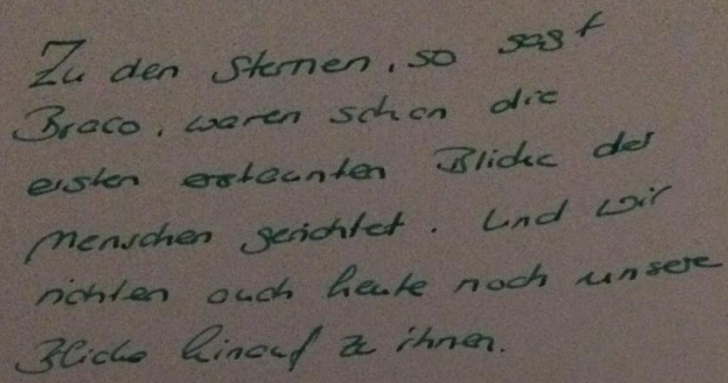 Zu den Sternen, so sagt
Braco, waren schon die
ersten erstaunten Blicke der
Menschen gerichtet. Und wir
richten auch heute noch unsere
Blicke hinauf zu ihnen.